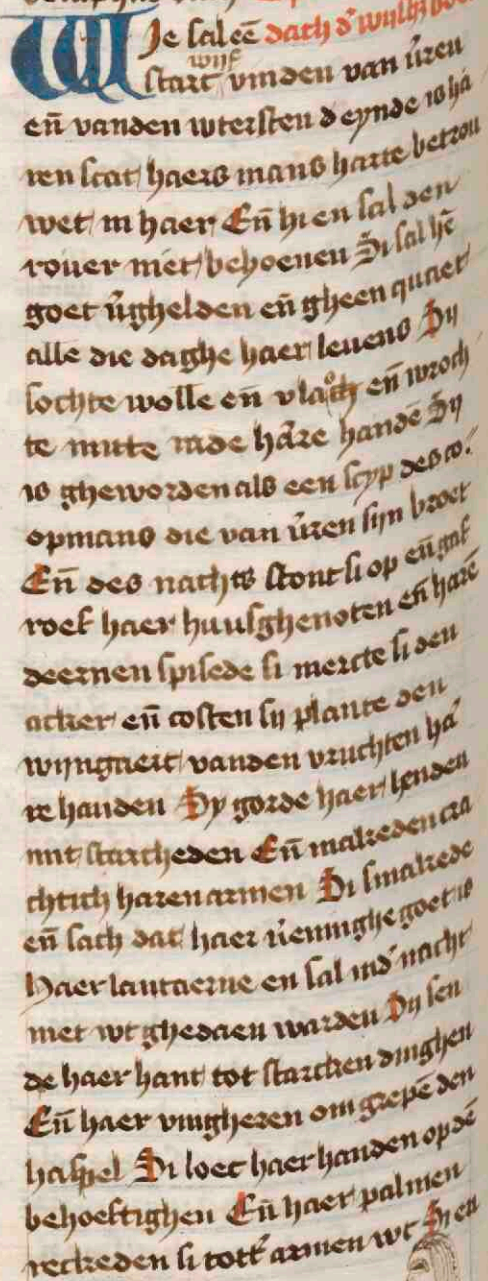 Wie sal eē dach d' wijsh
wijf
start vinden van v̄ren
eñ vanden wtersten deynde is ha
ren scat haers mans harte betrou
wet in haer Eñ hi en sal den
rouer niet behoenen Si sal hē
goet v̄ghelden eñ gheen quaet
alle die daghe haer leuens Sy
sochte wolle eñ vlasch eñ wroch
te mitte rade hāre handē Sy
is gheworden als een scyp des co
opmans die van v̄ren sijn broet
Eñ des nachts stont si op eñ gaf
roef haer huusghenoten eñ harē
deernen spisede si mercte si den
acker eñ costen sij plante den
wijngaert vanden vruchten ha
re handen Sy gorde haer lenden
mit starcheden Eñ makeden cra
chtich haren armen Si smakede
eñ sach dat haer v̄eninghe goet is
Haer lantaerne en sal īnd' nacht
niet wt ghedaen warden Sy sen
de haer hant tot starcken dinghen
Eñ haer vingheren om grepē den
haspel Si loec haer handen op dē
behoeftighen Eñ haer palmen
reckeden si tottē armen wt Si en